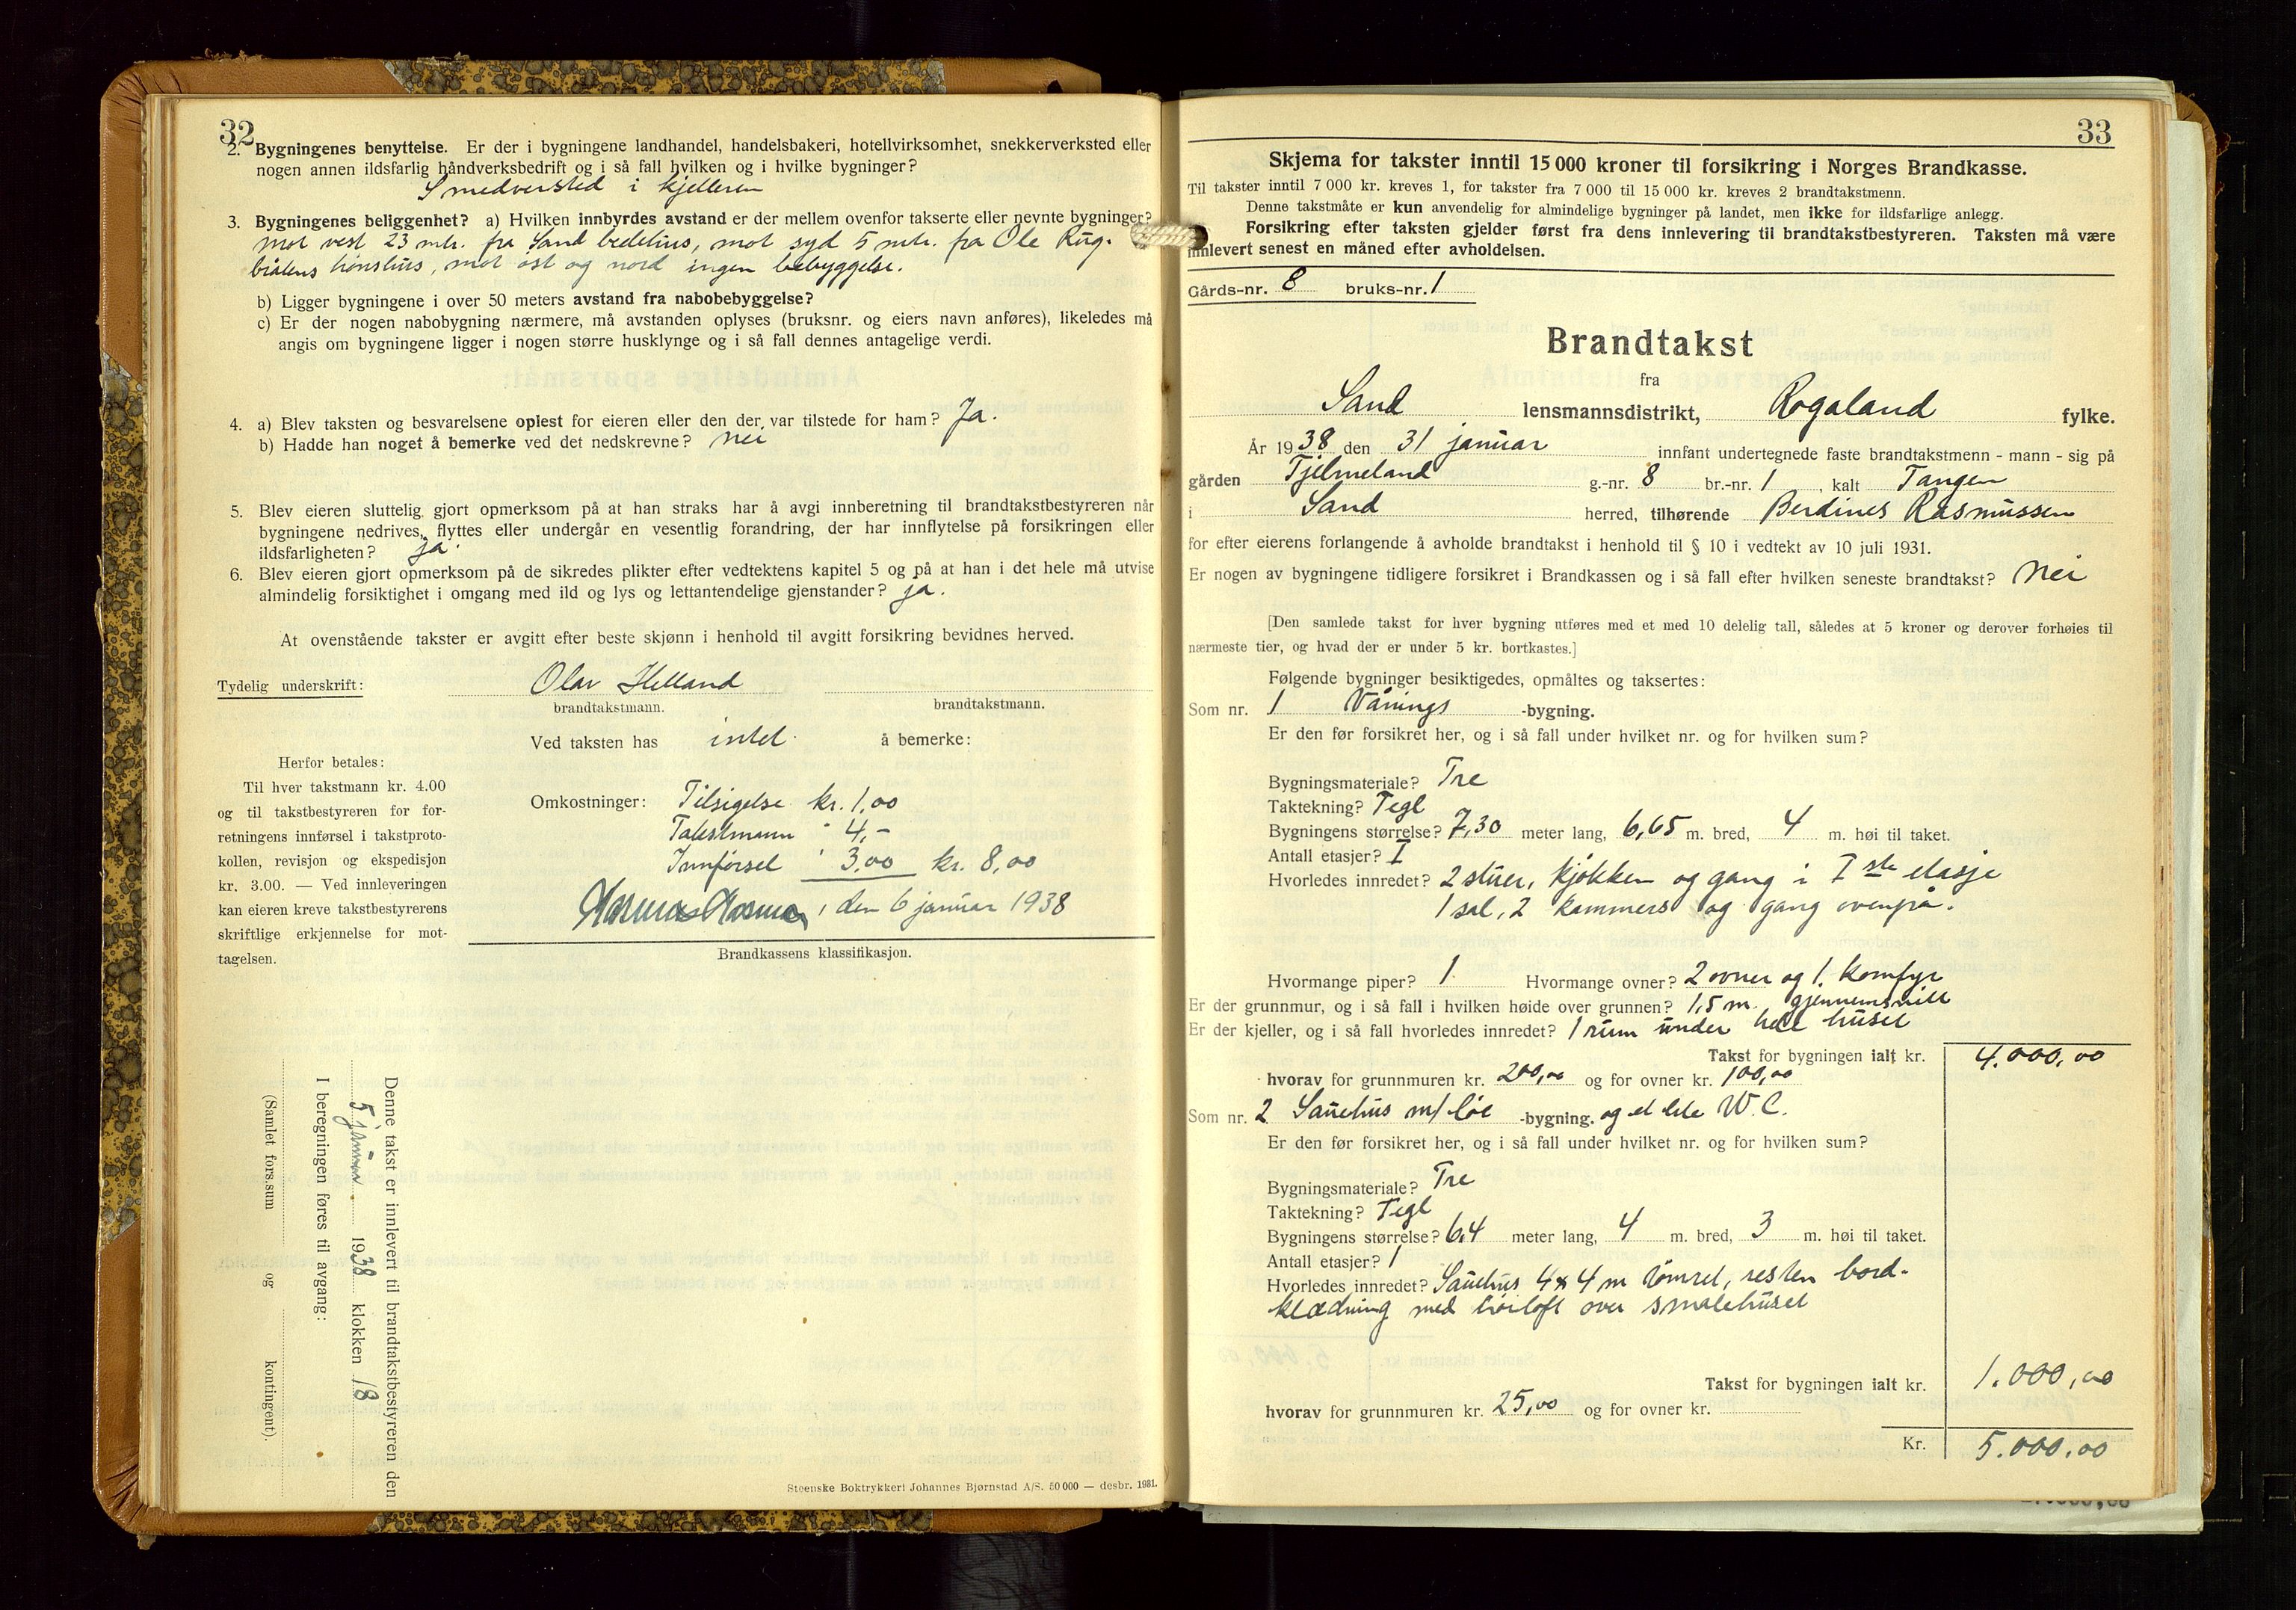 32
2. Bygningenes benyttelse. Er der i bygningene landhandel, handelsbakeri, hotellvirksomhet, snekkerverksted eller
nogen annen ildsfarlig håndverksbedrift og i så fall hvilken og i hvilke bygninger?
Smedversted i kjelleren
3. Bygningenes beliggenhet? a) Hvilken innbyrdes avstand er der mellem ovenfor takserte eller nevnte bygninger?
Mot vest 23 mtr. fra Sand bedehus, mot syd 5 mtr. fra Ole
hønshus, mot øst og nord ingen bebyggelse.
b) Ligger bygningene i over 50 meters avstand fra nabobebyggelse?
c) Er der nogen nabobygning nærmere, må avstanden oplyses (bruksnr. og eiers navn anføres), likeledes må
angis om bygningene ligger i nogen større husklynge og i så fall dennes antagelige verdi.
4. a) Blev taksten og besvarelsene oplest for eieren eller den der var tilstede for ham? Ja.
b) Hadde han noget å bemerke ved det nedskrevne? nei
5. Blev eieren sluttelig gjort opmerksom på at han straks har å avgi innberetning til brandtakstbestyreren når
bygningene nedrives, flyttes eller undergår en vesentlig forandring, der har innflytelse på forsikringen eller
ildsfarligheten? ja.
6. Blev eieren gjort opmerksom på de sikredes plikter efter vedtektens kapitel 5 og på at han i det hele må utvise
almindelig forsiktighet i omgang med ild og lys og lettantendelige gjenstander? ja.
At ovenstående takster er avgitt efter beste skjønn i henhold til avgitt forsikring bevidnes herved.
Tydelig underskrift: Olav Helland
brandtakstmann. brandtakstmann.
Ved taksten has intet å bemerke:
Herfor betales:
Til hver takstmann kr. 4.00
og til takstbestyreren for for-
retningens innførsel i takstproto-
kollen, revisjon og ekspedisjon
kr. 3.00. — Ved innleveringen
kan eieren kreve takstbestyrerens
skriftlige erkjennelse for mot-
tagelsen.
Omkostninger: Tilsigelse kr. 1,00
Takstmann " 4,-
Innførsel " 3,00 kr. 8,00
, den 6 januar 1938
Brandkassens klassifikasjon.
Denne takst er innlevert til brandtakstbestyreren den
5 januar 1938 klokken 18
I beregningen føres til avgang:
(Samlet fors.sum og kontingent).
Steenske Boktrykkeri Johannes Bjørnstad A/S. 50 000 — desbr. 1931.
33
Skjema for takster inntil 15 000 kroner til forsikring i Norges Brandkasse.
Til takster inntil 7 000 kr. kreves 1, for takster fra 7 000 til 15 000 kr. kreves 2 brandtakstmenn.
Denne takstmåte er kun anvendelig for almindelige bygninger på landet, men ikke for ildsfarlige anlegg.
Forsikring efter taksten gjelder først fra dens innlevering til brandtakstbestyreren. Taksten må være
innlevert senest en måned efter avholdelsen.
Gårds-nr. 8 bruks-nr. 1
Brandtakst
fra
Sand lensmannsdistrikt, Rogaland fylke.
År 1938 den 31 januar innfant undertegnede faste brandtakstmenn - mann - sig på
gården Tjelmeland g.-nr. 8 br.-nr. 1, kalt Tangen
i Sand herred, tilhørende Berdines Rasmussen
for efter eierens forlangende å avholde brandtakst i henhold til § 10 i vedtekt av 10 juli 1931.
Er nogen av bygningene tidligere forsikret i Brandkassen og i så fall efter hvilken seneste brandtakst? Nei
[Den samlede takst for hver bygning utføres med et med 10 delelig tall, således at 5 kroner og derover forhøies til
nærmeste tier, og hvad der er under 5 kr. bortkastes.]
Følgende bygninger besiktigedes, opmåltes og taksertes:
Som nr. 1 Vånings -bygning.
Er den før forsikret her, og i så fall under hvilket nr. og for hvilken sum?
Bygningsmateriale? Tre
Taktekning? Tegl
Bygningens størrelse? 7,30 meter lang, 6,65 m. bred, 4 m. høi til taket.
Antall etasjer? I
Hvorledes innredet? 2 stuer, kjøkken og gang i I ste etasje
1 sal, 2 kammers og gang ovenpå.
Hvormange piper? 1 Hvormange ovner? 2 ovner og 1. komfyr
Er der grunnmur, og i så fall i hvilken høide over grunnen? 1,5 m. gjennemsnitt
Er der kjeller, og i så fall hvorledes innredet? 1 rum under hele huset
Takst for bygningen ialt kr. 4.000,00
hvorav for grunnmuren kr. 200,00 og for ovner kr. 100,00
Som nr. 2 Sauehus m/ løe -bygning. og et lite W.C.
Er den før forsikret her, og i så fall under hvilket nr. og for hvilken sum?
Bygningsmateriale? Tre
Taktekning? Tegl
Bygningens størrelse? 6,4 meter lang, 4 m. bred, 3 m. høi til taket.
Antall etasjer? 1
Hvorledes innredet? Sauehus 4 x 4 m tømret, resten bord-
klædning med høiloft over smalehuset
Takst for bygningen ialt kr. 1.000,00
hvorav for grunnmuren kr. 25,00 og for ovner kr.
Kr. 5.000,00